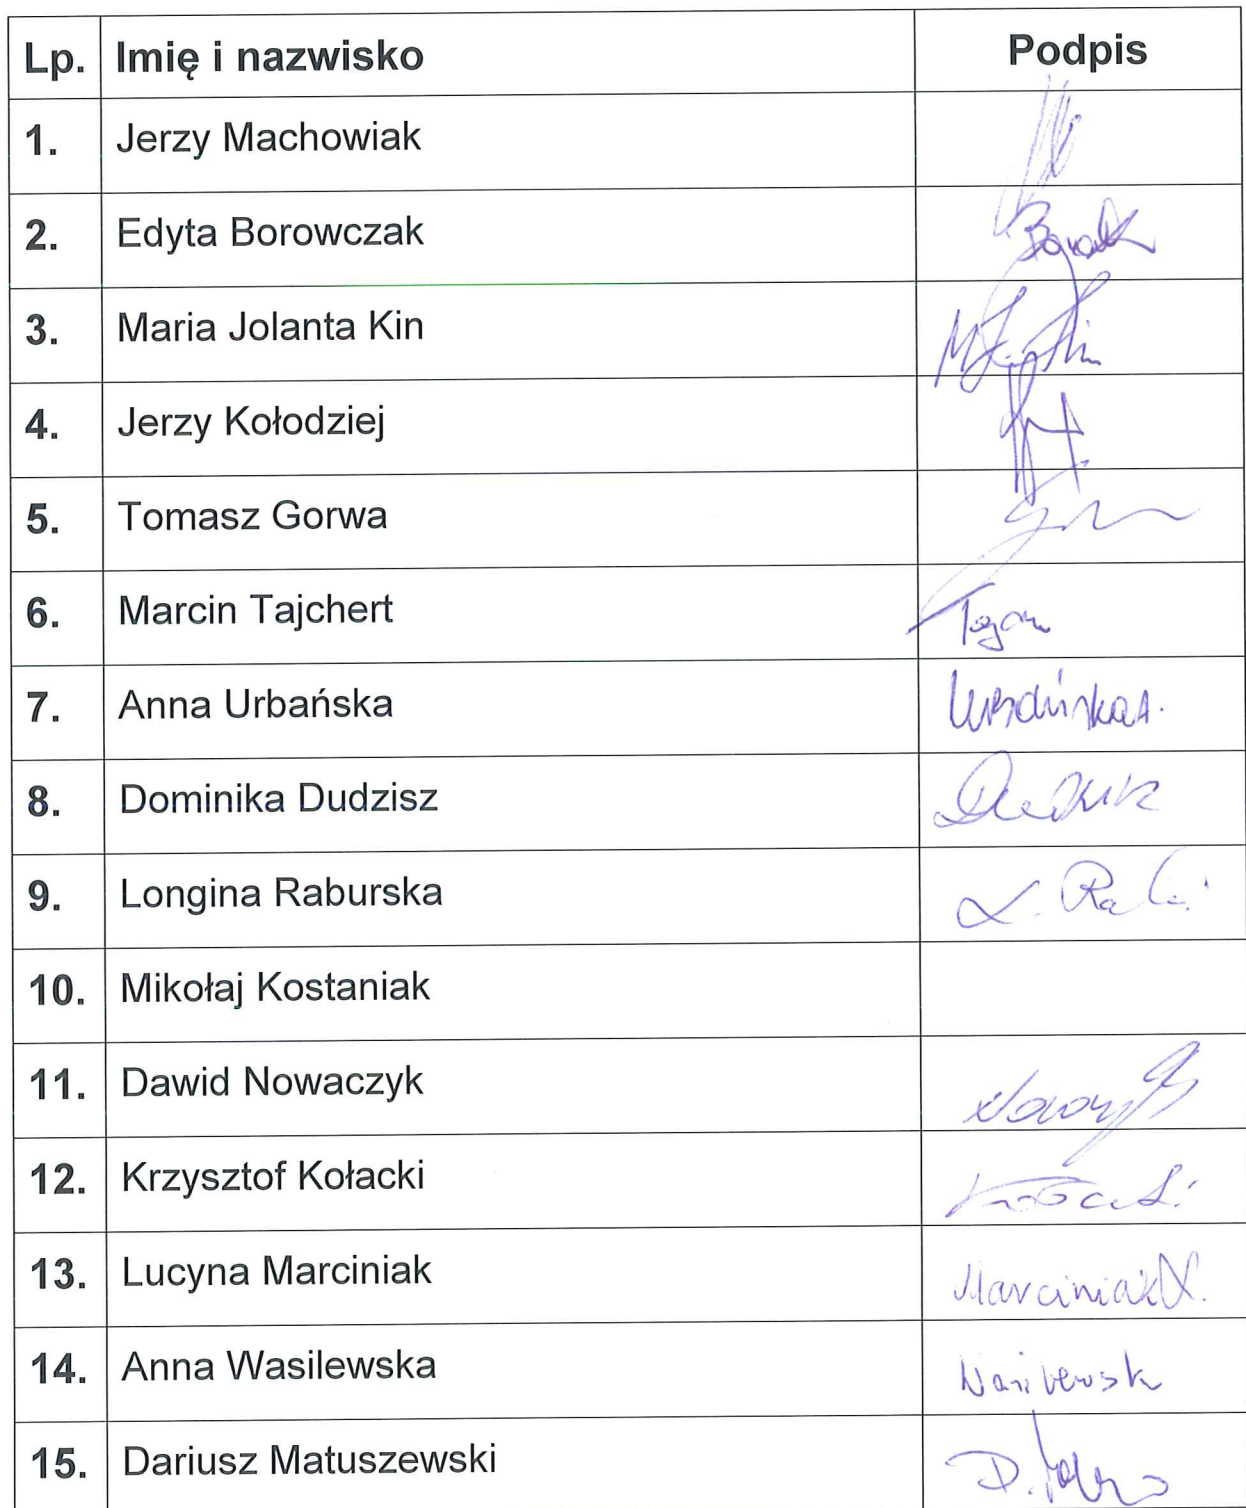 Lp. Imię i nazwisko Podpis
1. Jerzy Machowiak
2. Edyta Borowczak
3. Maria Jolanta Kin
4. Jerzy Kołodziej
5. Tomasz Gorwa
6. Marcin Tajchert
7. Anna Urbańska UrbańskaA.
8. Dominika Dudzisz
9. Longina Raburska
10. Mikołaj Kostaniak
11. Dawid Nowaczyk
12. Krzysztof Kołacki
13. Lucyna Marciniak Marciniak L.
14. Anna Wasilewska
15. Dariusz Matuszewski